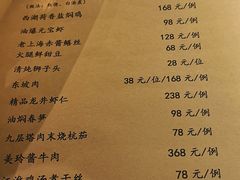 (做法:红烧、白汤煮)
西湖荷香盐焗鸡 168元/例
油爆元宝虾 98元/例
老上海赤酱鳝丝 128元/例
火腿鲜甜豆 68元/例
清炖狮子头 28元/位
东坡肉 38元/位/168元/例
精品龙井虾仁 238元/例
油焖春笋 98元/例
九层塔肉末烧杭茄 78元/例
美玲酱牛肉 368元/例
鸡汤煮干丝 78元/例